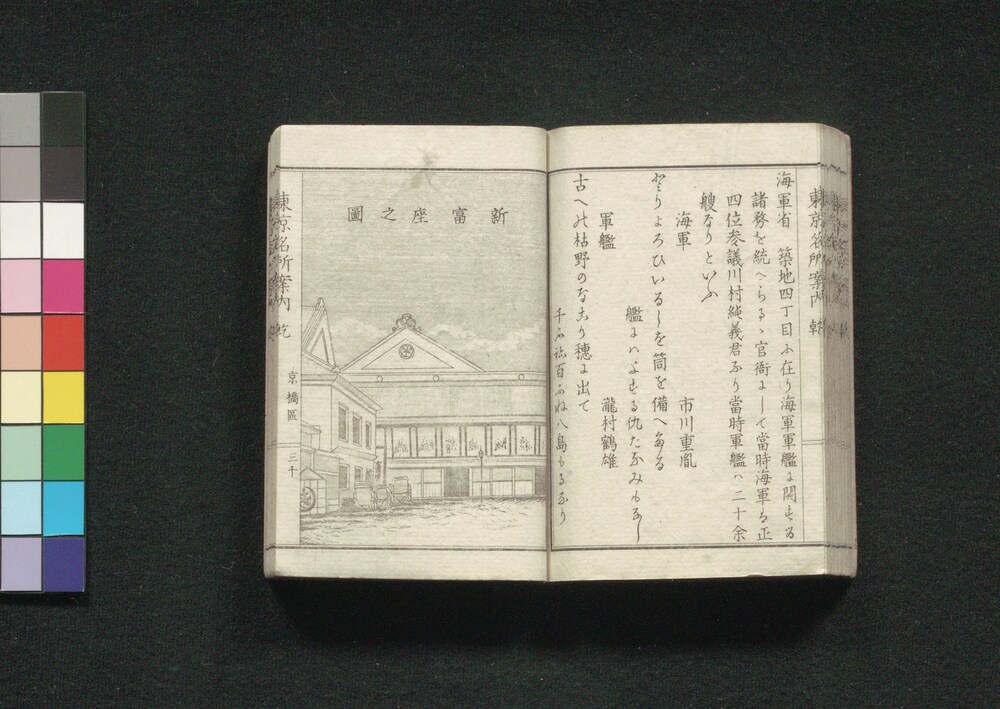 東京名所案内 乾
海軍省 築地四丁目ニ在り海軍軍艦に関する
諸務を統へらるゝ官衙にして當時海軍は正
四位参議川村純義君なり當時軍艦ハ二十余
艘なりといふ
海軍 市川重胤
よろひいるしを筒を備へ
軍艦 瀧村鶴雄
艦にハよする仇たなみもなし
古への枯野のなこり穂に出て
千ふね百ふね八島もるなり
新富座之圖
東京名所案内 乾
京橋區
三十